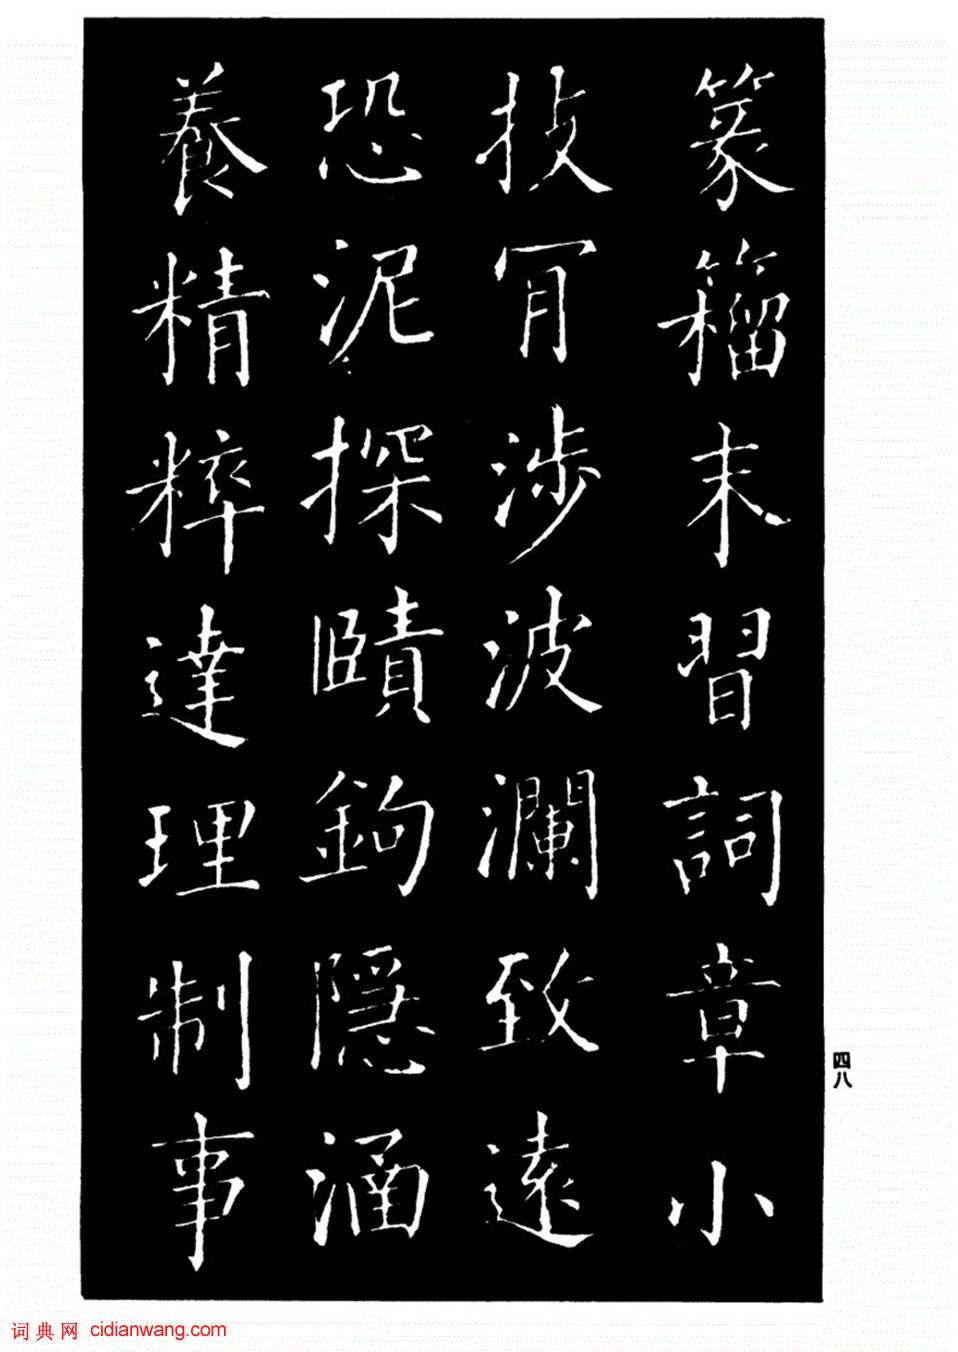 篆籀末習詞章小
技冝涉波瀾致遠
恐泥探賾鉤隱涵
養精粹達理制事
四八
词典网 cidianwang.com